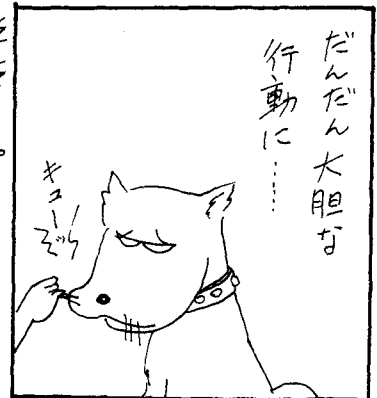 だんだん大胆な
行動に……
キュー